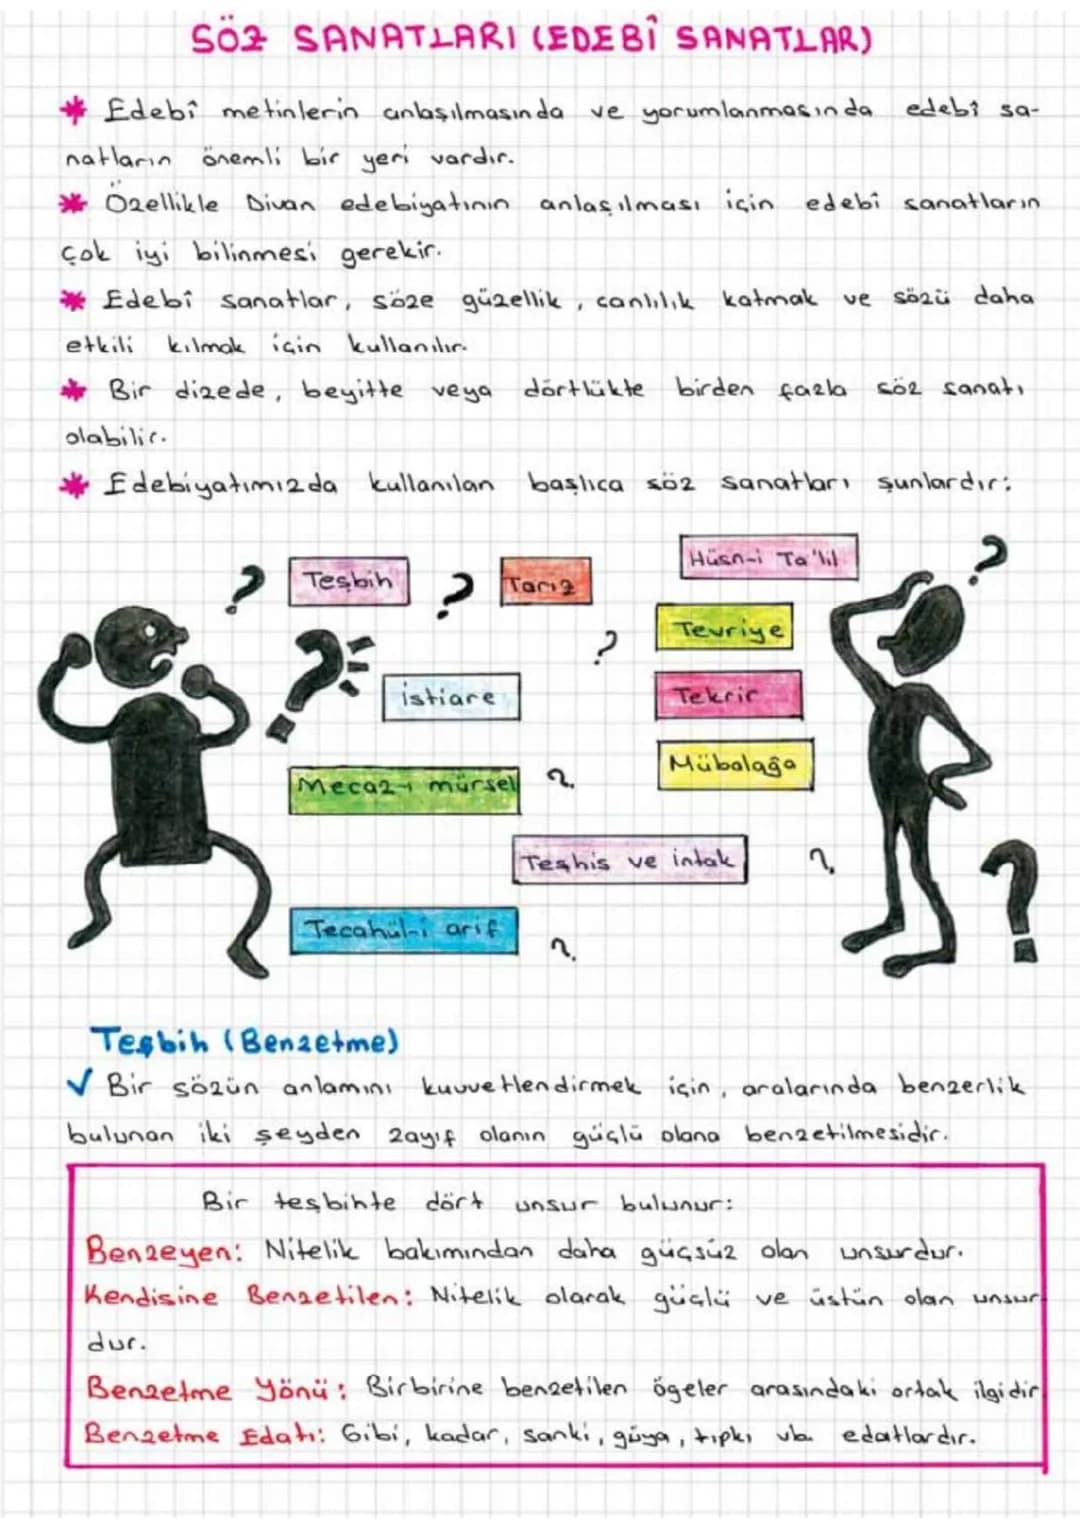 SÖZ SANATLARI (EDEBÎ SANATLAR)
* Edebî metinlerin anlaşılmasında ve yorumlanmasında edebî sa-
natların önemli bir yeri vardır.
* Özellikle Divan edebiyatının anlaşılması için edebî sanatların
çok iyi bilinmesi gerekir.
* Edebî sanatlar, söze güzellik, canlılık katmak ve sözü daha
etkili kılmak için kullanılır.
* Bir dizede, beyitte veya dörtlükte birden fazla söz sanatı
olabilir.
* Edebiyatımızda kullanılan başlıca söz sanatları şunlardır:
? Teşbih ? Tariz Hüsn-i Ta'lil ?
? ? Tevriye
istiare Tekrir
Mecaz-ı mürsel ? Mübalağa
Teşhis ve intak ? ?
Tecahül-i arif ?
Teşbih (Benzetme)
✓ Bir sözün anlamını kuvvetlendirmek için, aralarında benzerlik
bulunan iki şeyden zayıf olanın güçlü olana benzetilmesidir.
Bir teşbihte dört unsur bulunur:
Benzeyen: Nitelik bakımından daha güçsüz olan unsurdur.
Kendisine Benzetilen: Nitelik olarak güçlü ve üstün olan unsur
dur.
Benzetme Yönü: Birbirine benzetilen ögeler arasındaki ortak ilgidir
Benzetme Edatı: Gibi, kadar, sanki, güya, tıpkı vb. edatlardır.